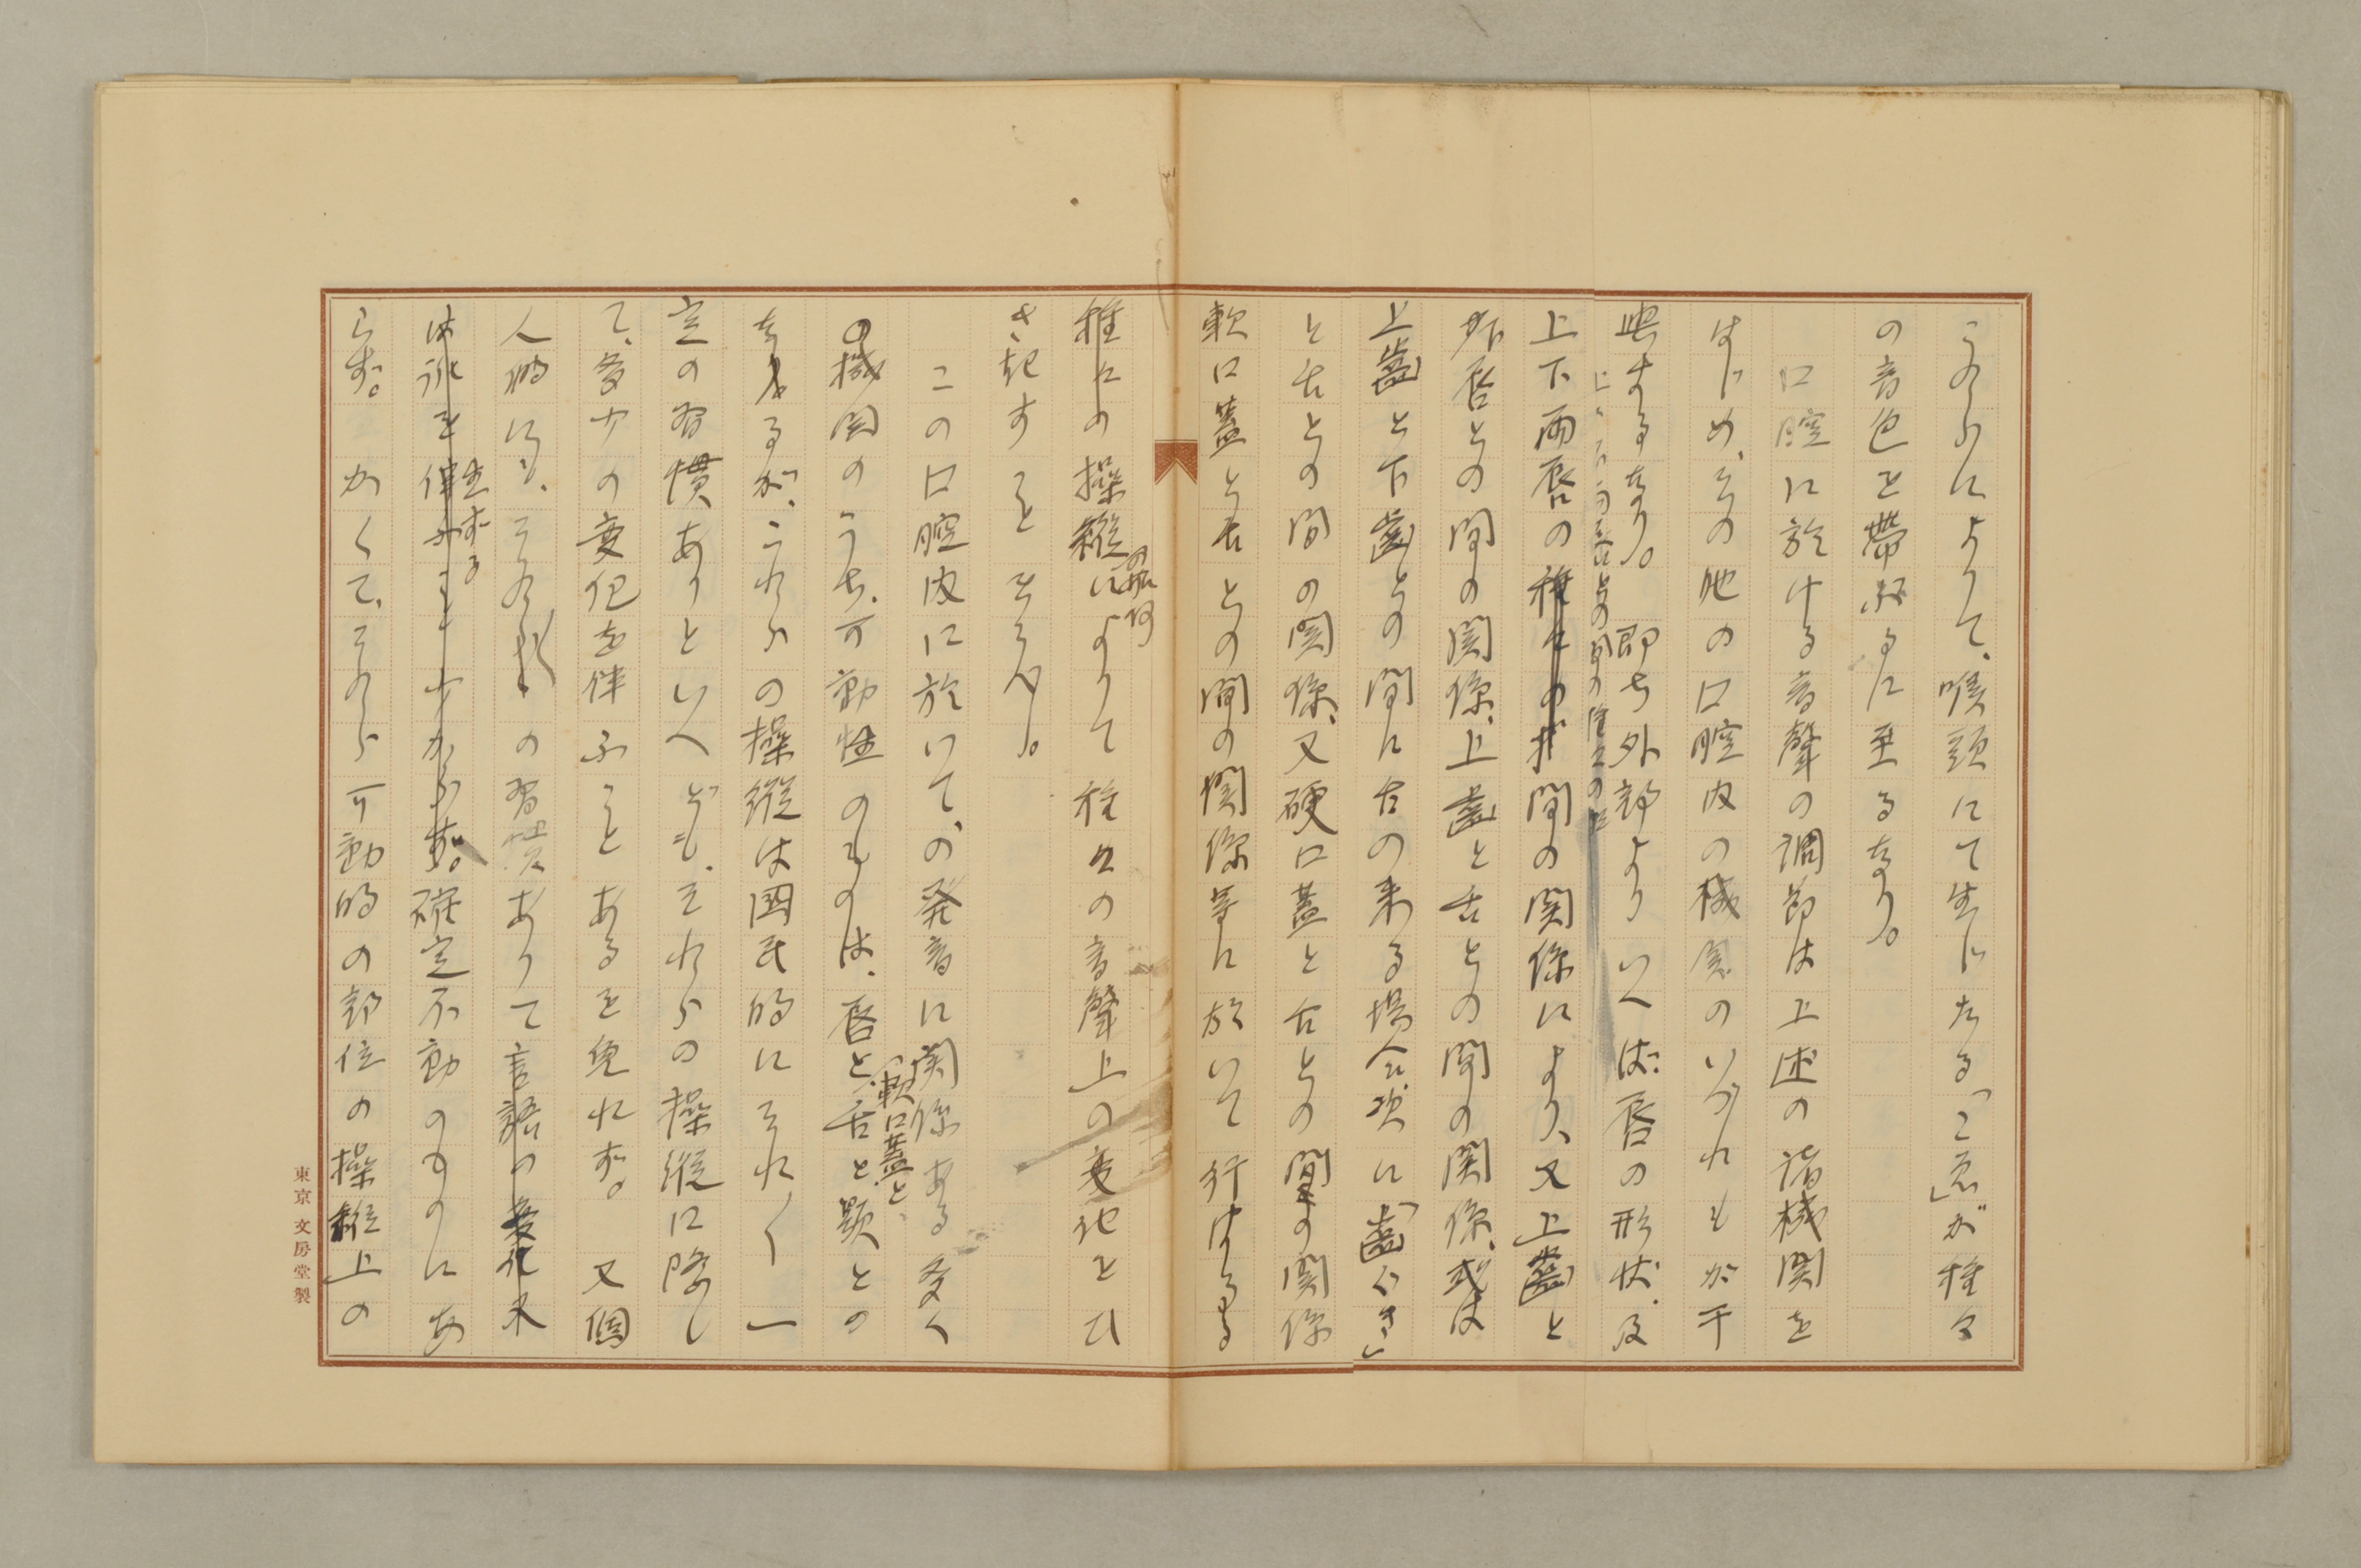 これらによりて、喉頭にて生じたる「こゑ」が種々
の音色を帯ぶるに至るなり。
口腔に於ける音聲の調節は上述の諸機関を
はじめ、その他の口腔内の機関のいづれもが干
與するなり。即ち外部よりいへば、唇の形状、及
上下両唇の種々の間の関係により、又上齒と
下唇との間の関係、上齒と舌との間の関係、或は
上齒と下齒との間に舌の来る場合、次に「齒ぐき」
と舌との間の関係、又硬口蓋と舌との間の関係
軟口蓋と舌との間の関係等に於いて行はるる
種々の操縦の如何によりて種々の音聲上の変化をひ
き起すことをうべし。
この口腔内に於いて、の発音に関係ある多く
の機関のうち、可動性のものは、唇と、軟口蓋と、舌と顎との
なるが、これらの操縦は國民的にそれ〱一
定の習慣ありといへども、それらの操縦に際し
て、多少の変化を伴ふことあるを免れず。又個
人的にも、それ〲の習慣ありて言語の変化又
は訛を生ずる伴ふこと少からず。確定不動のものにあ
らず。かくて、それら可動的の部位の操縦上の
東京 文房堂製